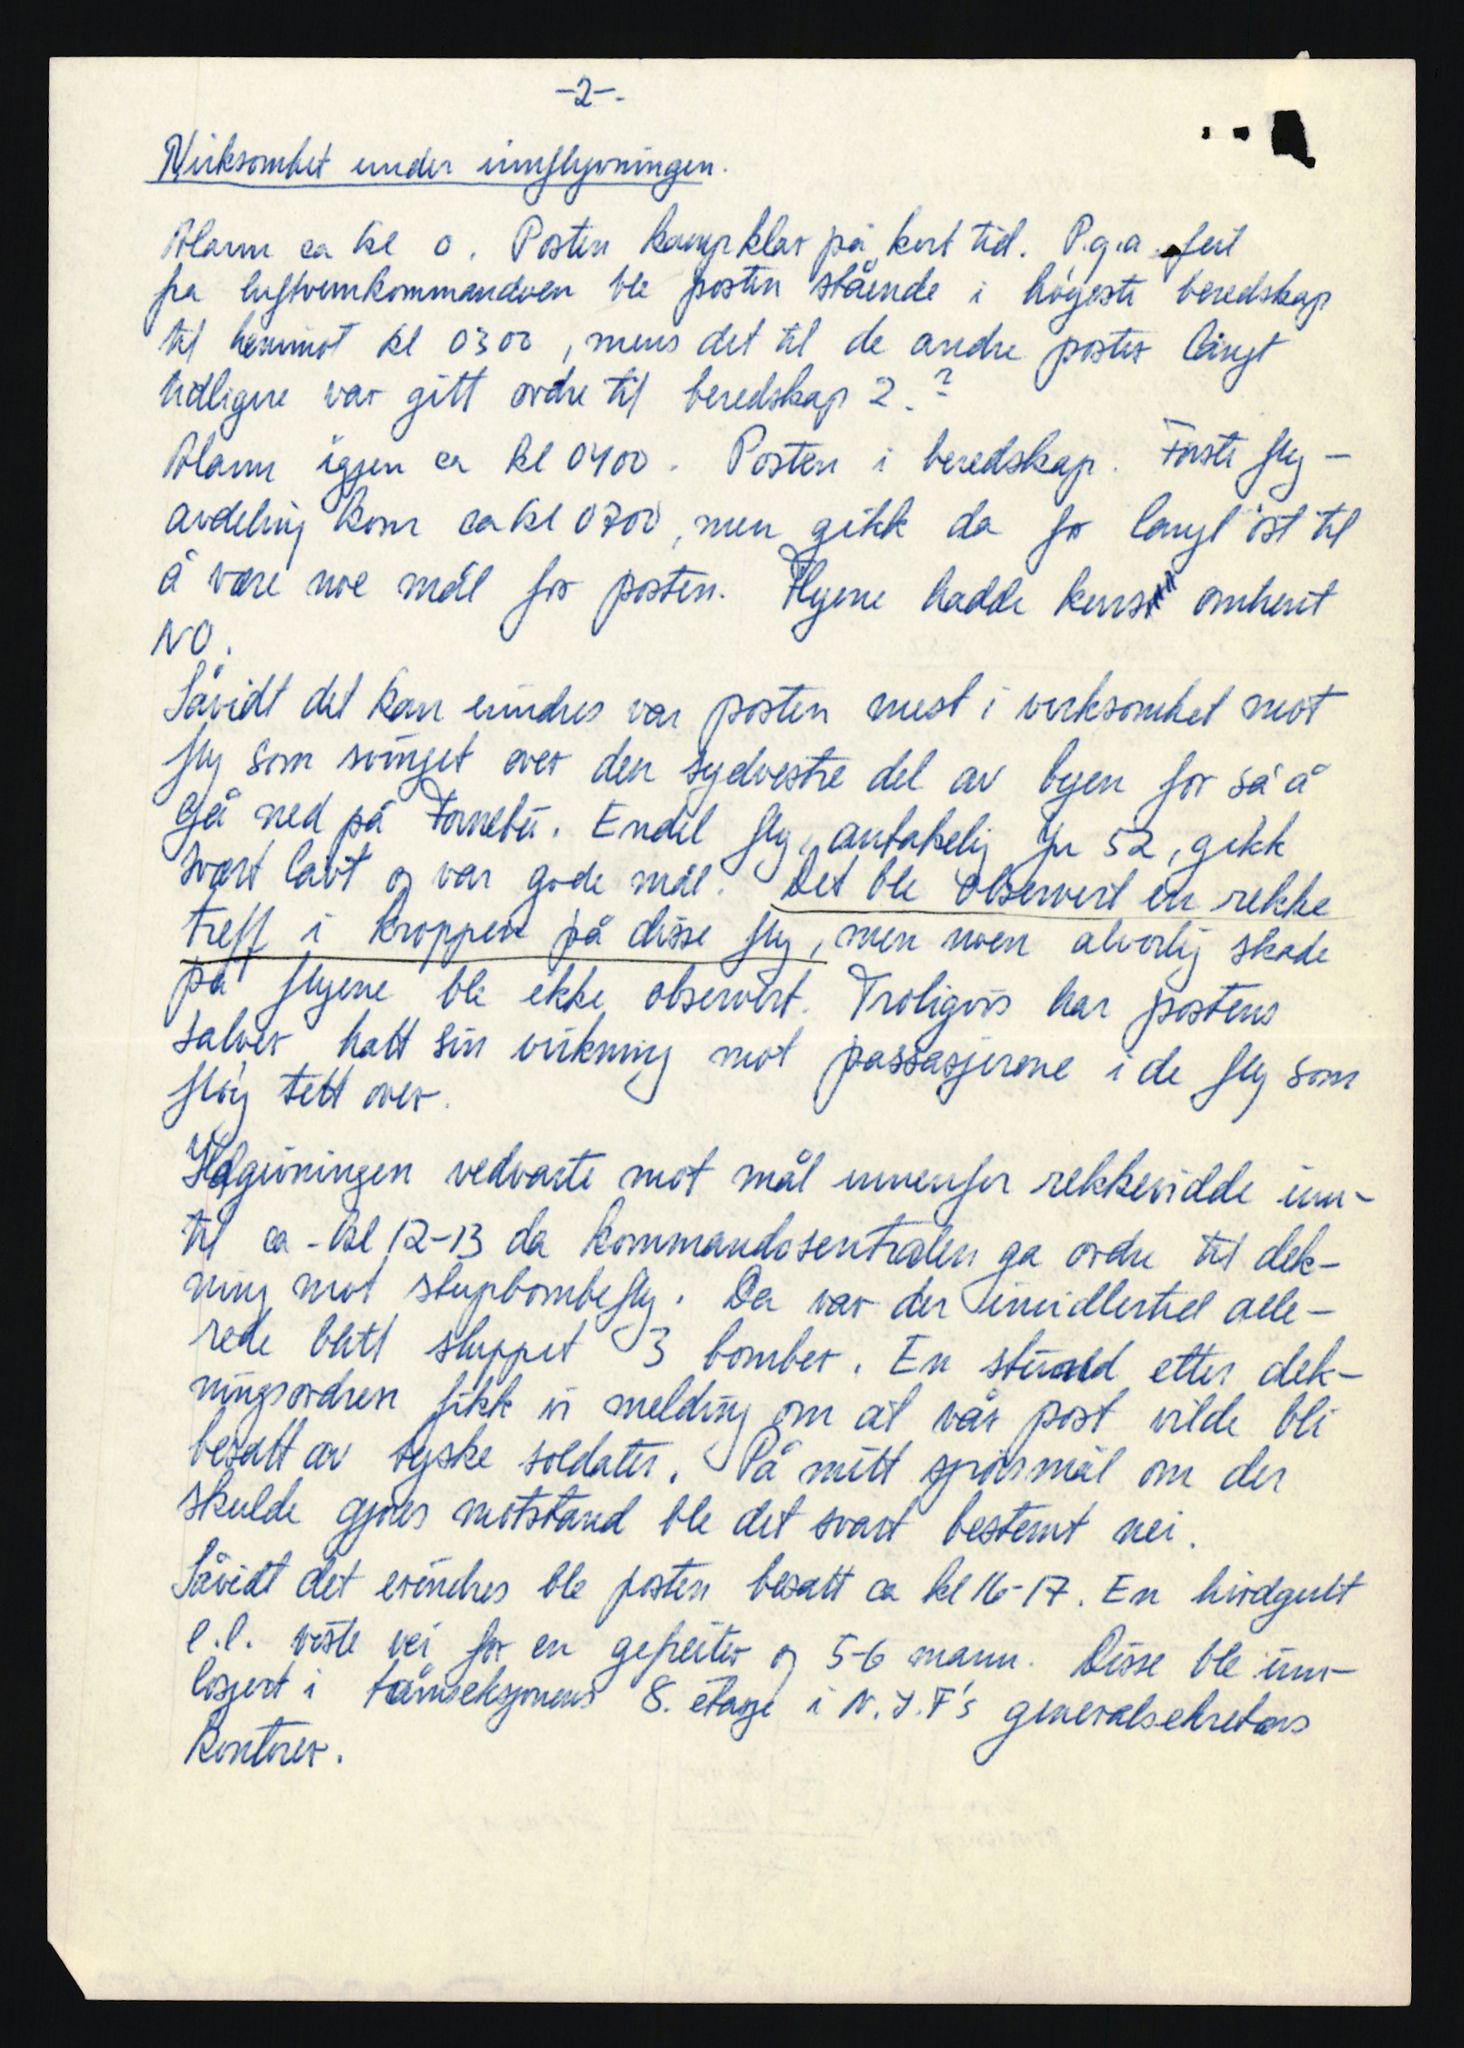 -2-.
Virksomhet under innflyvningen.
Alarm ca kl 0. Posten kampklar på kort tid. P.g.a. feil
fra luftvernkommandoen ble posten stående i høyeste beredskap
til henimot kl 0300, mens det til de andre poster langt
tidligere var gitt ordre til beredskap 2.?
Alarm igjen ca kl 0400. Posten i beredskap. Første fly-
avdeling kom ca kl 0700, men gikk da for langt øst til
å være noe mål for posten. Flyene hadde kurs omkrent
NO.
Såvidt det kan erindres var posten mest i virksomhet mot
fly som svinget over den sydvestre del av byen for så å
gå ned på Fornebu. Endel fly, antakelig Ju 52, gikk
svært lavt og var gode mål. Det ble observert en rekke
treff i kroppen på disse fly, men noen alvorlig skade
på flyene ble ikke observert. Troligvis har postens
salver hatt sin virkning mot passasjerene i de fly som
fløy tett over.
Ildgivningen vedvarte mot mål innenfor rekkevidde inn-
til ca kl 12-13 da kommandosentralen ga ordre til dek-
ning mot stupbombefly. Da var der imidlertid alle-
rede blitt sluppet 3 bomber. En stund etter dek-
ningsordren fikk vi melding om at vår post vilde bli
besatt av tyske soldater. På mitt spørsmål om der
skulde gjøres motstand ble det svart bestemt nei.
Såvidt det erindres ble posten besatt ca kl 16-17. En hirdgutt
e.l. viste vei for en gefreiter og 5-6 mann. Disse ble inn-
losjert i tårnseksjonens 8. etasje i N.I.F's generalsekretærs
kontorer.